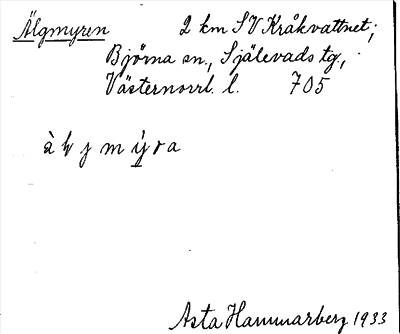 Älgmyren 2 km SV Kråkvattnet;
Björna sn., Själevads tg.,
Västernorrl. l. 705
Asta Hammarberg 1933